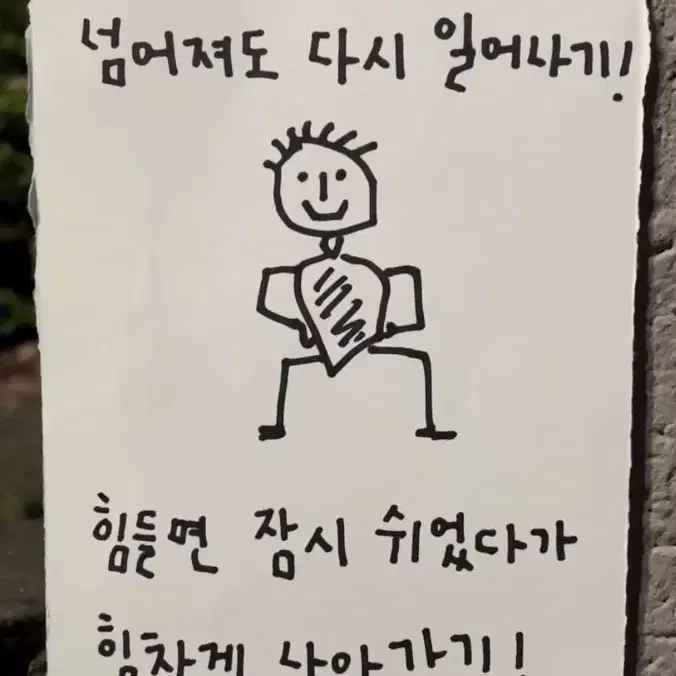 넘어져도 다시 일어나기!
힘들면 잠시 쉬었다가
힘차게 나아가기!